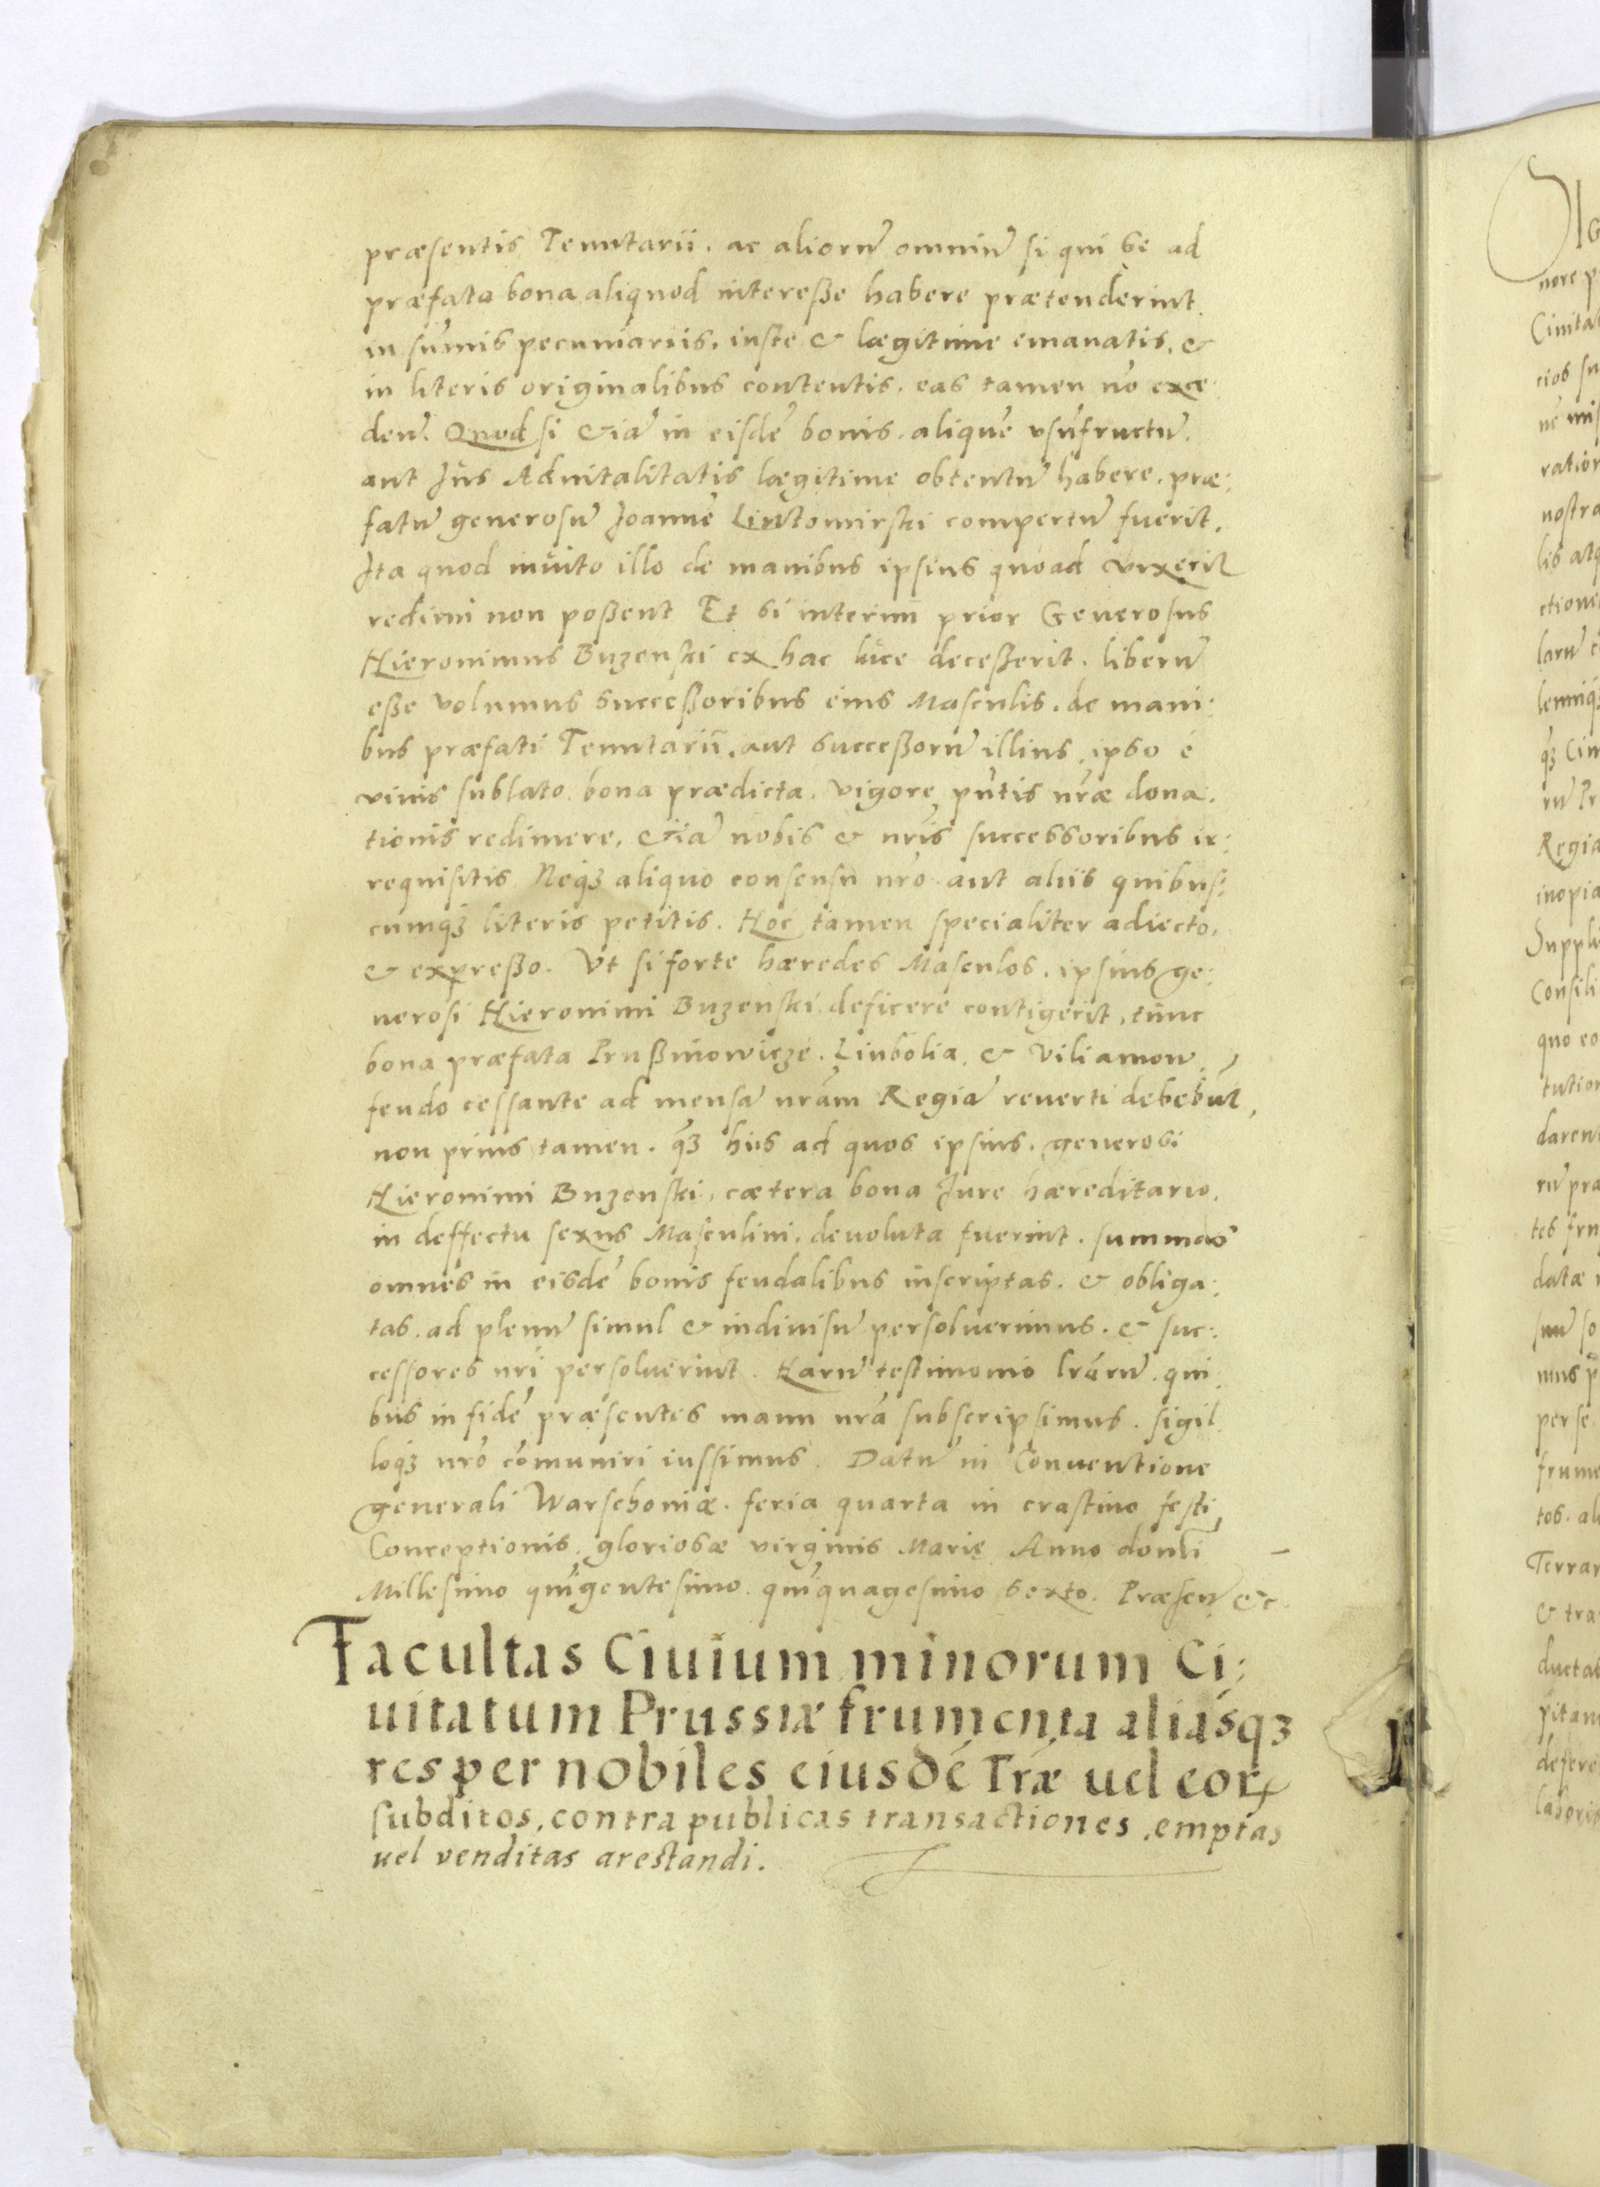 præsentis Tenutarii. ac aliorū omniū si qui se ad
præfata bona aliquod interesse habere prætenderint.
in sūmis pecuniariis, iuste & lægitime emanatis, &
in literis originalibus contentis, eas tamen nō exce
den̄. Quod si etiā in eisdē bonis. aliquē vsūfructū.
aut Jus Aduitalitatis lægitime obtentū habere. præ:
fatū generosū Joannē Lutomirski compertū fuerit,
Ita quod inuito illo de manibus ipsius quoad vixerit
redimi non possent Et si interim prior Generosus
Hieronimus Buzenski ex hac luce decesserit. liberū
esse volumus successoribus eius Masculis. de mani:
bus præfati Tenutarii, aut successorū illius, ipso é
viuis sublato. bona prædicta. vigore pn̄tis nr̄æ dona.
tionis redimere, etiā nobis & nr̄is successoribus ir:
requisitis Neqꝫ aliquo consensu nr̄o aut aliis quibus:
cumqꝫ literis petitis. Hoc tamen specialiter adiecto,
& expresso. Vt si forte hæredes Masculos. ipsius ge:
nerosi Hieronimi Buzenski deficere contigerit, tunc
bona præfata Prussinowicze. Liubolia, & Viliamow,
feudo cessante ad mensā nr̄am Regiā reuerti debebūt,
non prius tamen. qꝫ hiis ad quos ipsius. generosi
Hieronimi Buzenski, cætera bona Jure hæreditario,
in deffectu sexus Masculini, deuoluta fuerint. summas
omnes in eisdē bonis feudalibus inscriptas. & obliga:
tas. ad plenū simul & indiuisū persoluerimus. & suc:
cessores nr̄i persoluerint. Harū testimonio lr̄arū. qui
bus in fidē præsentes manu nr̄a subscripsimus. sigil
loqꝫ nr̄o cōmuniri iussimus. Datū in Conuentione
generali Warschoniæ. feria quarta in crastino festi
Conceptionis. gloriosæ virginis Marię Anno domī
Millesimo quīgentesimo. quīquagesimo sexto. Præsen̄ &c
Facultas Ciuium minorum Ci:
uitatum Prussiæ frumenta aliasqꝫ
res per nobiles eiusdē Tr̄æ uel eoꝝ
subditos, contra publicas transactiones, emptas
uel venditas arestandi.